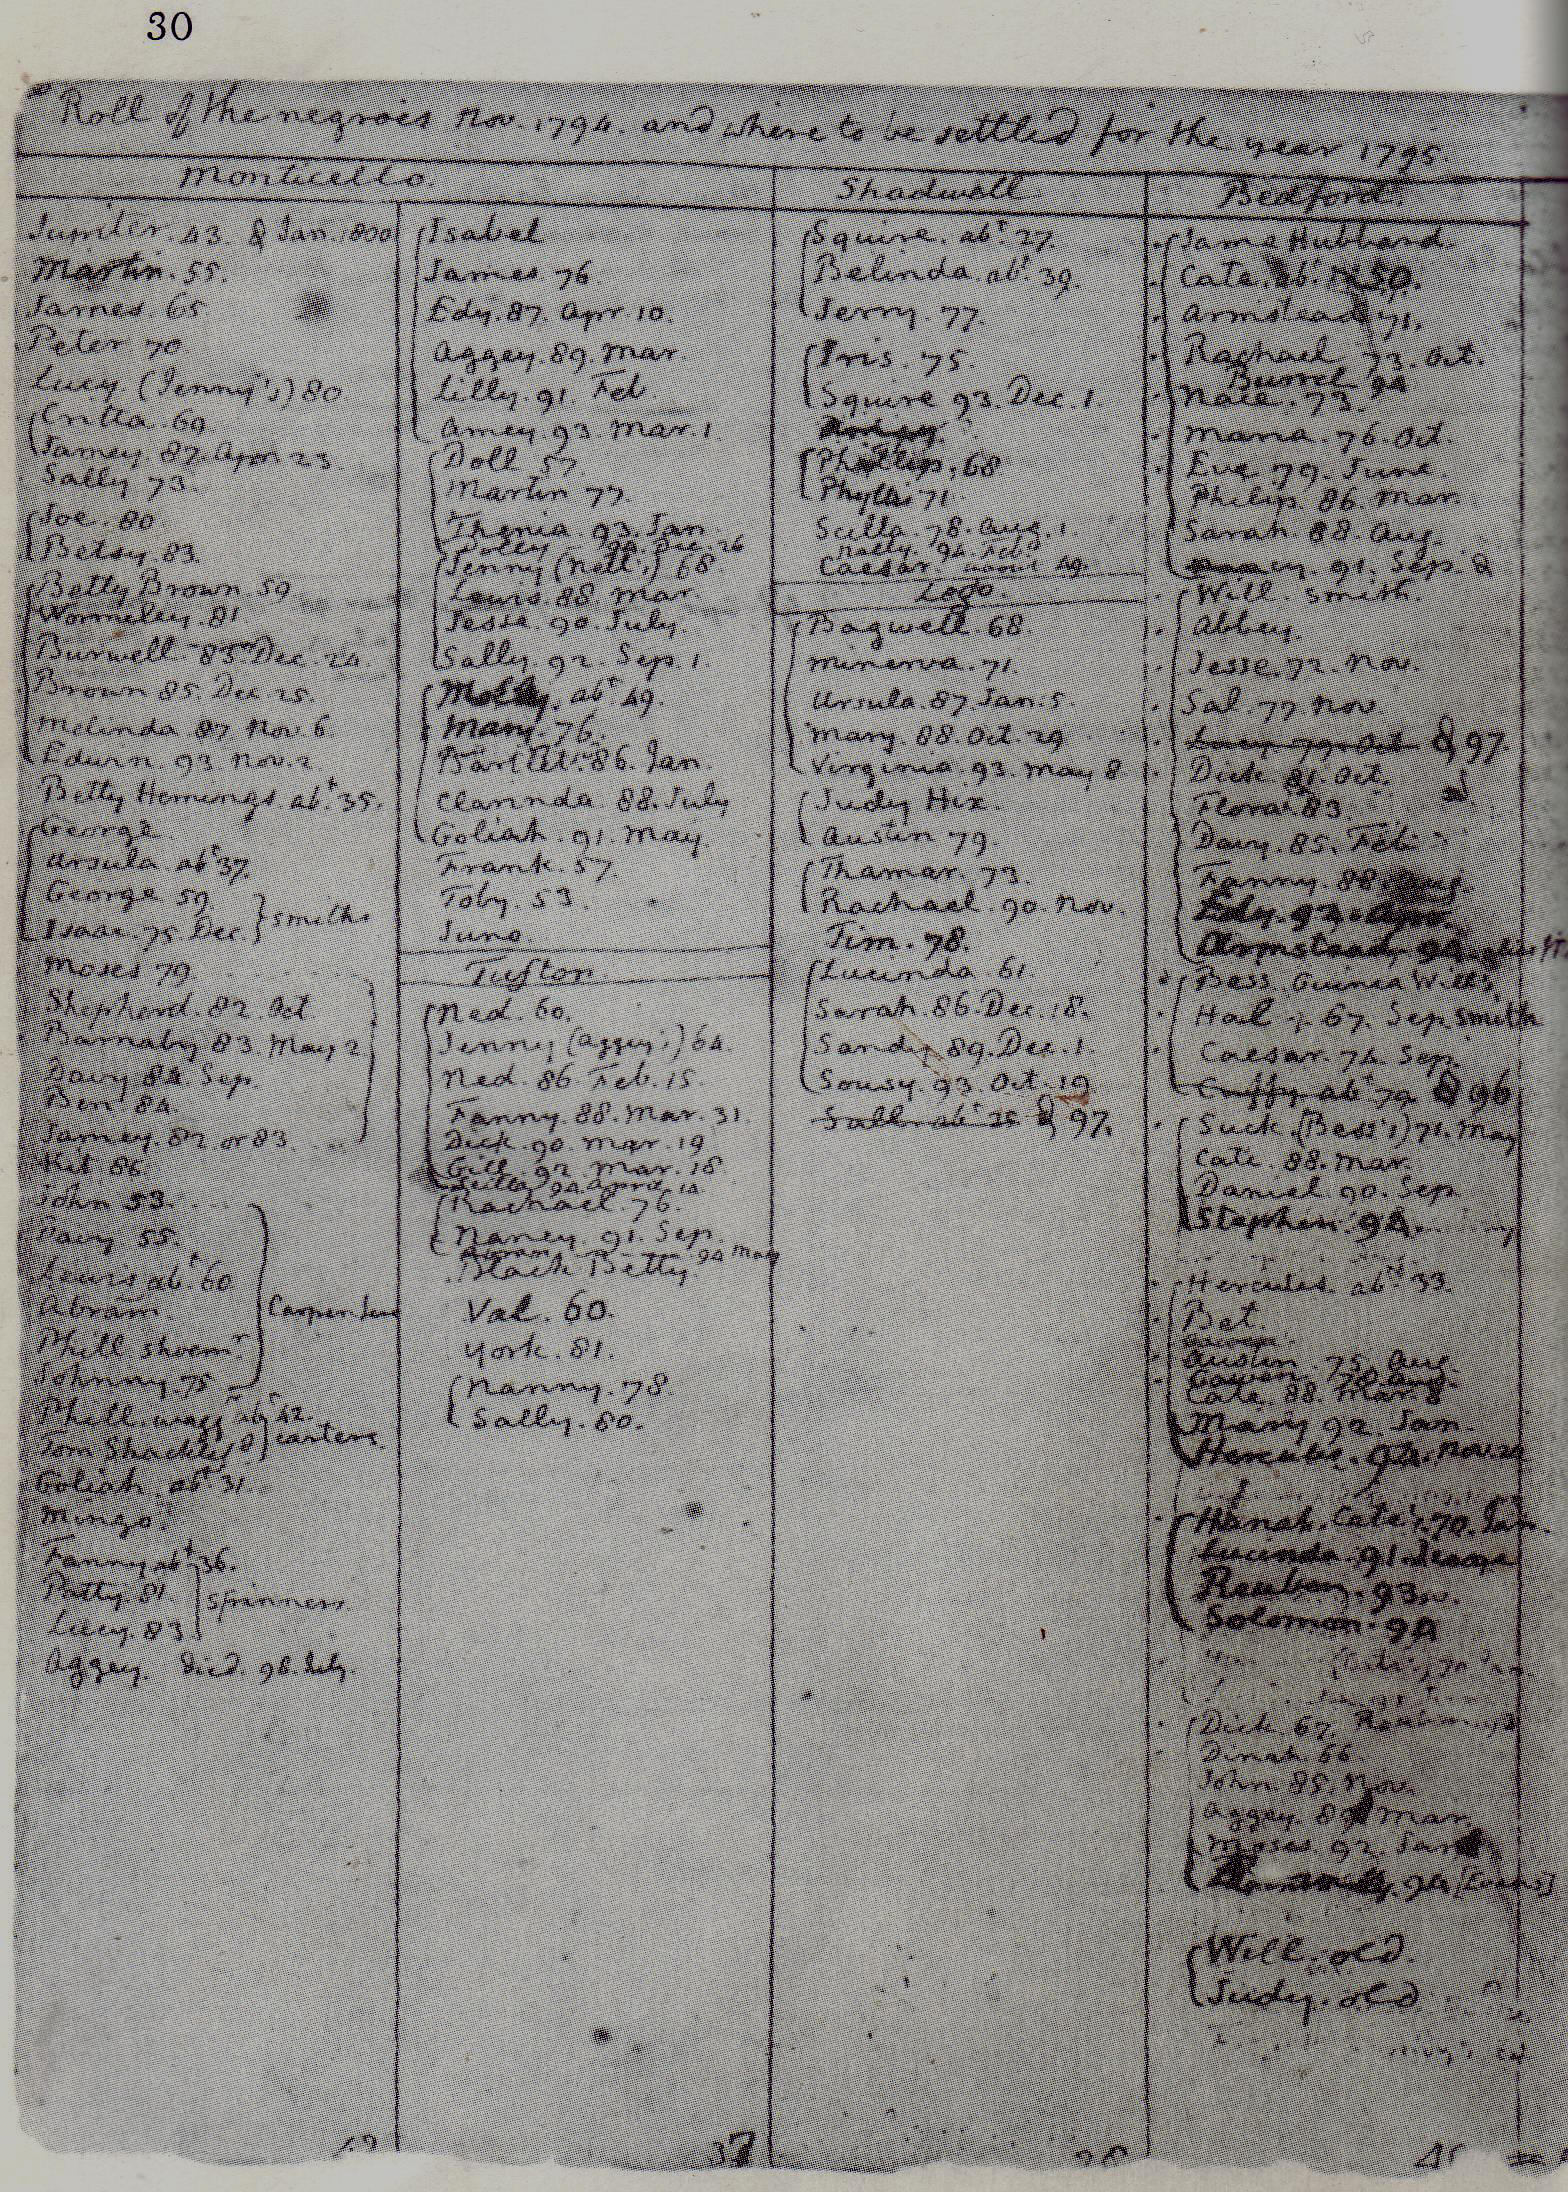 30
Roll of the negroes Nov. 1794. and where to be settled for the year 1795.
Monticello.
Jupiter. 43. d Jan. 1800
Martin. 55.
James. 65
Peter 70.
Lucy (Jenny's) 80
Critta. 69.
Jamey. 87. Apr. 23.
Sally 73.
Joe. 80.
Betsy. 83.
Betty Brown. 59
Wormeley. 81
Burwell. 83. Dec. 24.
Brown 85. Dec. 25.
Melinda 87. Nov. 6.
Edwin. 93. Nov. 2
Betty Hemings. abt. 35.
George.
Ursula. abt 37.
George 59.
Isaac. 75. Dec. } smiths
Moses 79.
Shepherd. 82. Oct
Barnaby 83. May 2.
Davy 84. Sep.
Ben. 84.
Jamey. 82. or 83.
Kit 86.
John 53.
Davy 55.
Lewis abt. 60
Abram.
Phill shoemr.
Johnny. 75 } Carpenters
Phill. waggr abt 42.
Tom Shackleford } carters.
Goliah. abt. 31.
Mingo.
Fanny abt 36.
Patty. 81.
Lucy. 83. } Spinners.
Aggey. died. 98. July.
Isabel
James 76.
Edy. 87. Apr. 10.
Aggey. 89. Mar.
Lilly. 91. Feb.
Amey. 93. Mar. 1.
Doll 57.
Martin 77.
Thenia. 93. Jan.
Dolly 94. Dec. 26
Jenny (Nell's) 68.
Lewis. 88. Mar.
Jesse. 90. July.
Sally. 92. Sep. 1.
Molly. abt. 49.
Mary. 76.
Bartlet. 86. Jan.
Clarinda 88. July
Goliah. 91. May.
Frank. 57.
Toby. 53.
Juno.
Tufton.
Ned. 60.
Jenny (Aggey's) 64.
Ned. 86. Feb. 15.
Fanny. 88. Mar. 31.
Dick. 90. Mar. 19
Gill. 92. Mar. 18
Scilla 94. April. 14.
Rachael. 76.
Nancy. 91. Sep.
Abram 94 May
Black Betty.
Val. 60.
York. 81.
Nanny. 78.
Sally. 80.
Shadwell
Squire. abt. 27.
Belinda. abt. 39.
Jerry. 77.
Iris. 75.
Squire 93. Dec. 1.
Phillip. 68
Phyllis 71.
Scilla. 78. Aug. 1.
Caesar. 49
Lego.
Bagwell. 68.
Minerva. 71.
Ursula. 87. Jan. 5.
Mary. 88. Oct. 29
Virginia. 93. May 8
Judy Hix.
Austin 79.
Thamar. 73.
Rachael. 90. Nov.
Tim. 78.
Lucinda. 61.
Sarah. 86. Dec. 18.
Sandy. 89. Dec. 1.
Sousy. 93. Oct. 19
Sall. abt 25 d 97.
Bedford.
Jame Hubbard.
Cate. abt. 50.
Armstead 71.
Rachael 73. Oct.
Burrel 94
Nace. 73.
Maria. 76. Oct.
Eve. 79. June
Philip. 86. Mar.
Sarah. 88. Aug.
91. Sep. d
Will. Smith.
Abbey.
Jesse. 72. Nov.
Sal. 77. Nov.
Lucy. 79. Oct d 97.
Dick. 81. Oct.
Flora. 83.
Davy. 85. Feb.
Fanny. 88. Aug.
Edy. 92. Apr.
Armstead. 94.
Bess. Guinea Will's
Hal. 67. Sep. smith
Caesar. 74. Sep.
Cuffy. abt. 79. d 96
Suck. (Bess's) 71. May
Cate. 88. Mar.
Daniel 90. Sep.
Stephen. 94.
Hercules. abt. 33.
Bet.
Austin. 75. Aug.
Gawen. 78. Aug.
Cate. 88. Mar. 8
Mary 92. Jan.
Hercules. 94. Nov. 20
Hanah. Cate's. 70. Jan.
Lucinda. 91.
Reuben. 93.
Solomon. 94
Dick 67.
Dinah 66.
John. 85. Nov.
Aggey. 89. Mar.
Moses. 92. Jan.
94 [Evans]
Will. old.
Judy. old
37